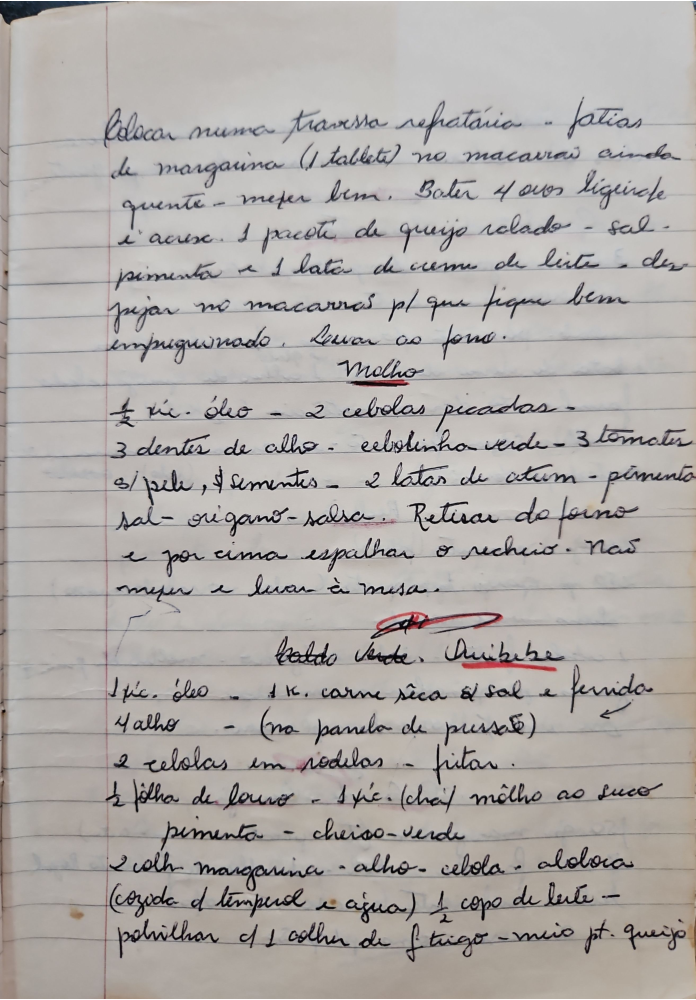 Colocar numa travessa refratária - fatias
de margarina (1 tablete) no macarrão ainda
quente - mexer bem. Bater 4 ovos ligeirate
e acresc. 1 pacote de queijo ralado - sal -
pimenta e 1 lata de creme de leite - des
pejar no macarrão p/ que fique bem
empregnado. Levar ao forno.
Molho
½ xíc. óleo - 2 cebolas picadas -
3 dentes de alho - cebolinha verde - 3 tomates
s/ pele, s/ sementes - 2 latas de atum - pimenta
sal - orégano - salsa. Retirar do forno
e por cima espalhar o recheio. Não
mexer e levar à mesa.
Caldo Verde. Quibebe
1 xíc. óleo - 1 K. carne sêca s/ sal e fervida
4 alho - (na panela de pressão)
2 cebolas em rodelas - fritar.
½ fôlha de louro - 1 xíc. (chá) môlho ao suco
pimenta - cheiro-verde
2 colh. margarina - alho - cebola - abobora
(cozida c/ temperol e água) ½ copo de leite -
polvilhar c/ 1 colher de f. trigo - meio pt. queijo